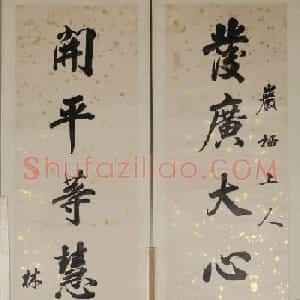 發廣大心
巖栖上人
開平等慧
林
Shufaziliao.COM